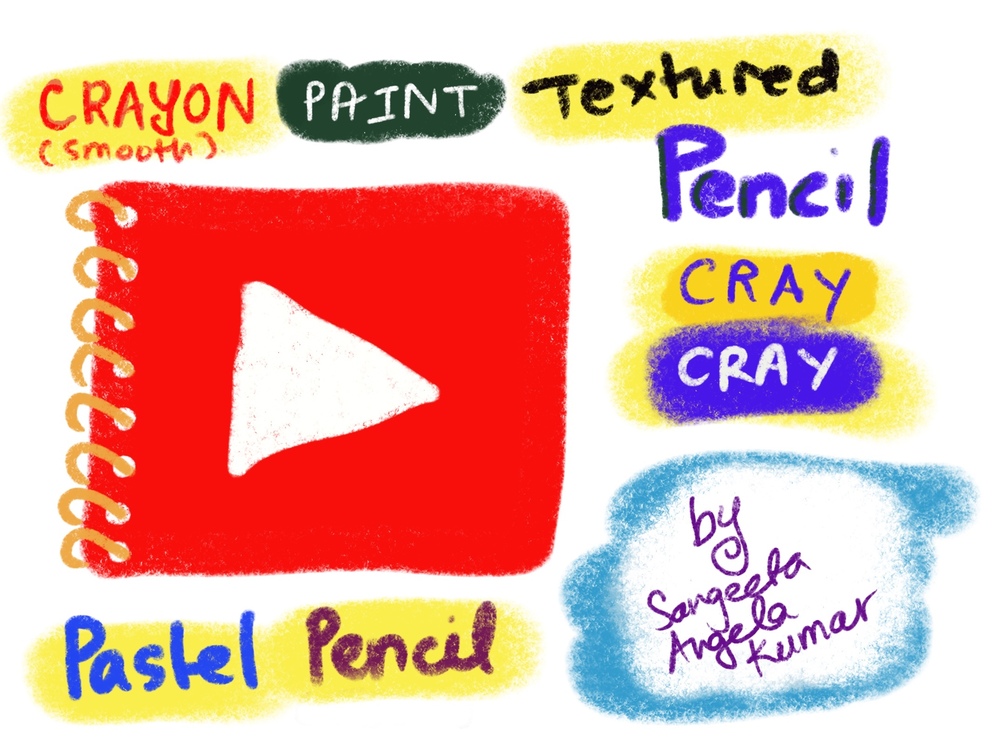 CRAYON PAINT Textured
(smooth)
Pencil
CRAY
CRAY
by
Sangeeta
Angela
Kumar
Pastel Pencil